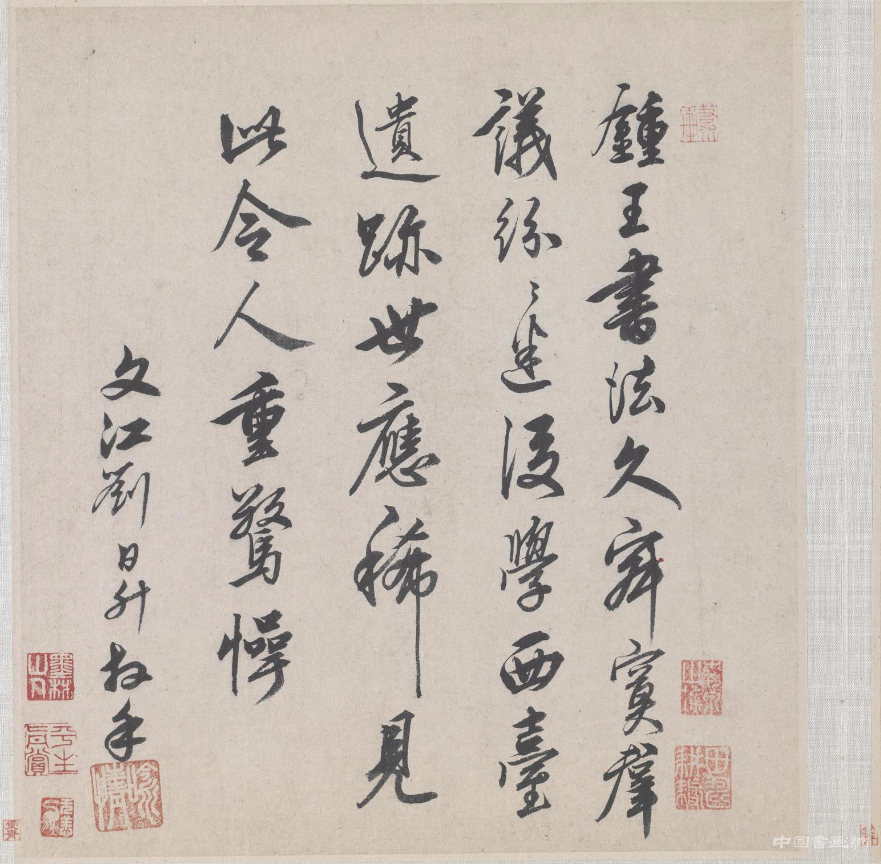 鍾王書法久寂寞群
議紛〻迷後學西臺
遺跡世應稀見
此令人重驚愕
文江劉日升拜手
中国書画网